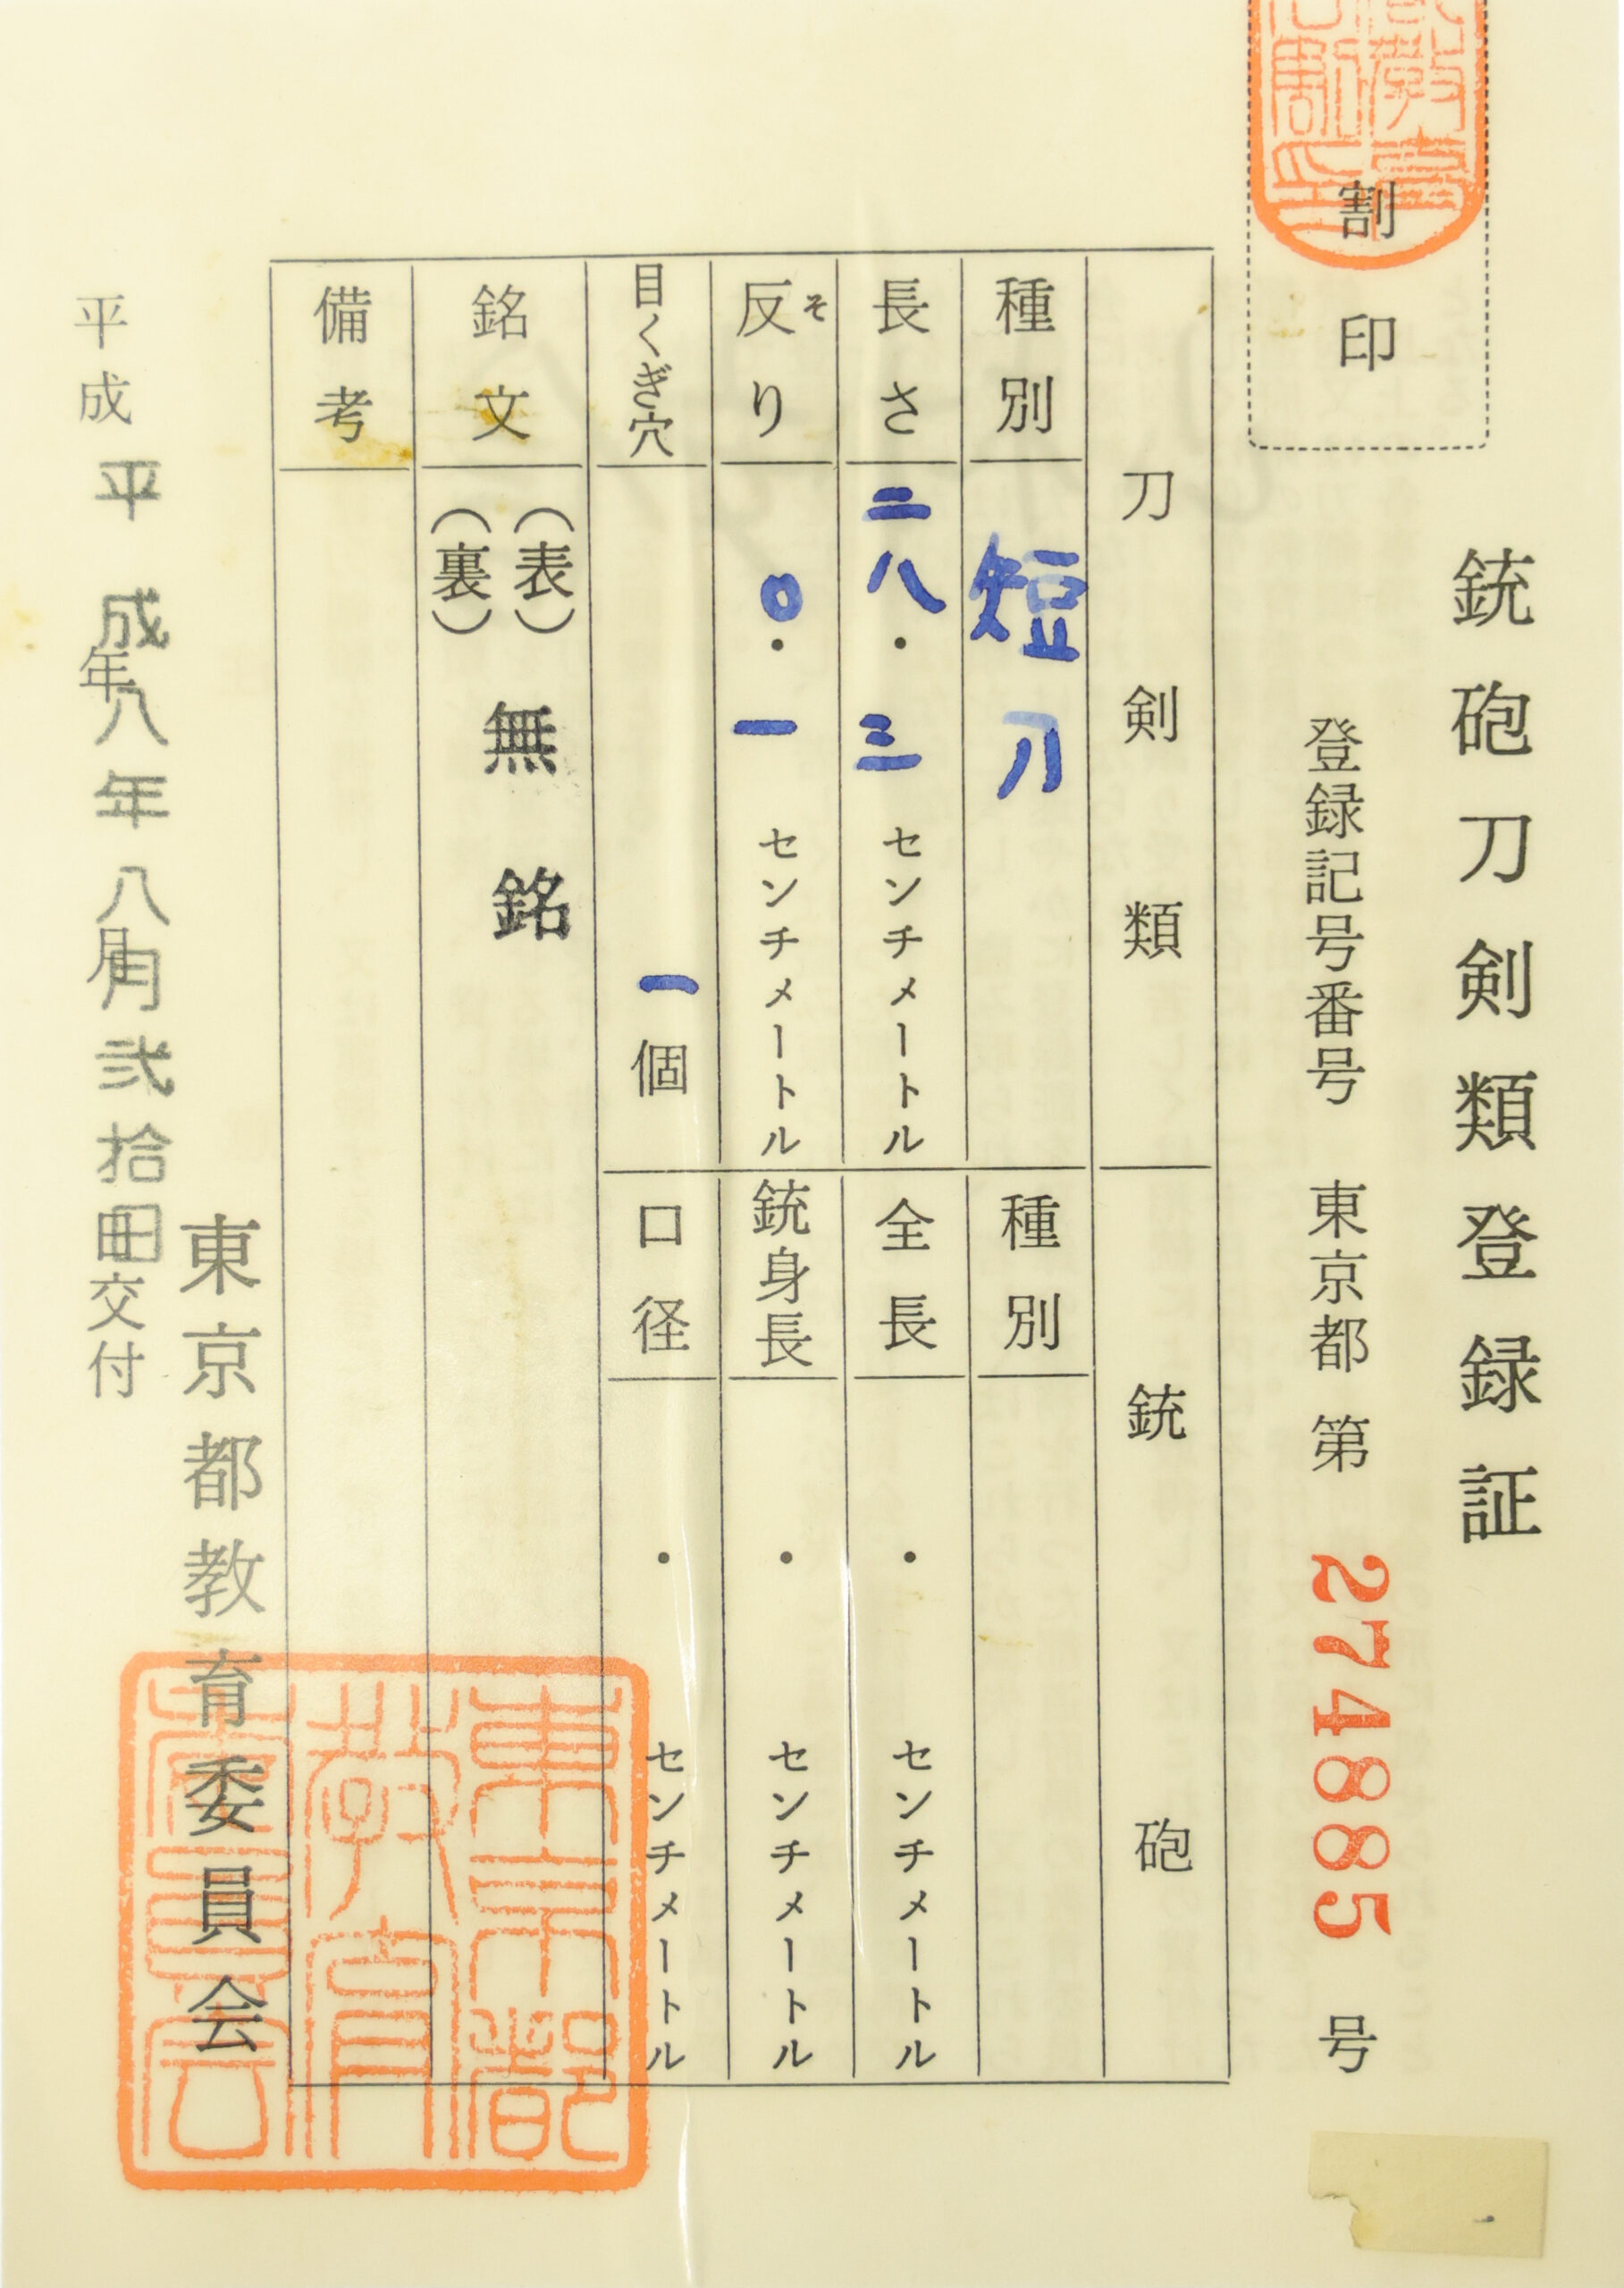 割印
銃砲刀剣類登録証
登録記号番号 東京都 第 274885 号
刀剣類
銃砲
種別 短刀
種別
長さ 二八・三 センチメートル
全長 ・ センチメートル
反り 〇・一 センチメートル
そ
銃身長 ・ センチメートル
目くぎ穴 一個
口径 ・ センチメートル
銘文 (表) 無銘
(裏)
備考
東京都教育委員会
平成 年 月 日交付
平成八年八月弐拾日
東京都
教育
委員会